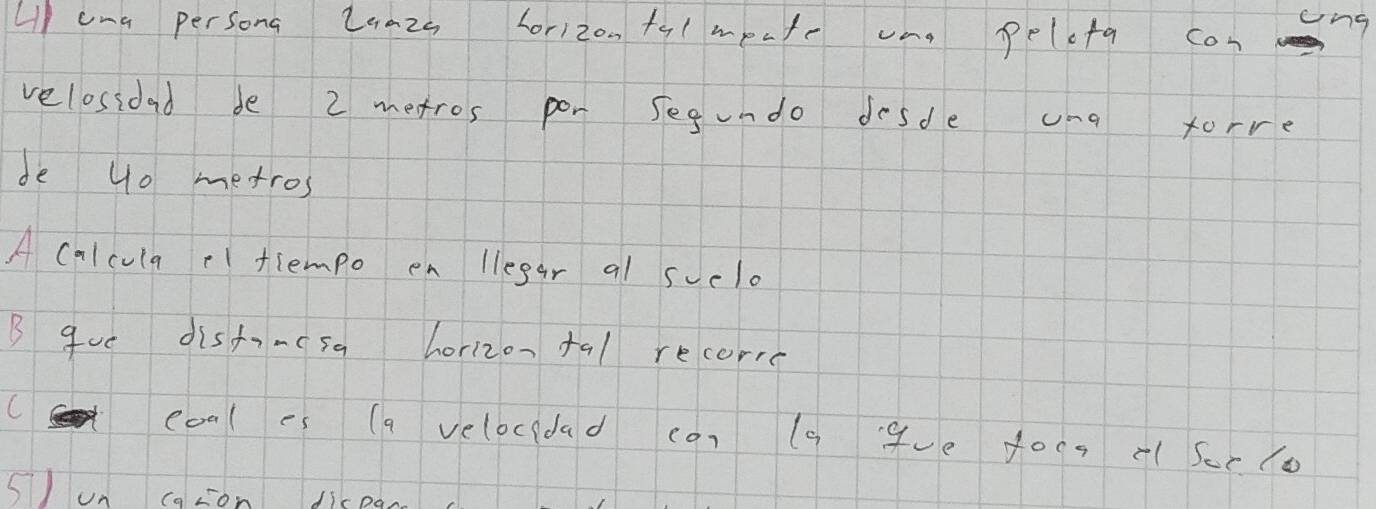 4) una persona Lanza horizontalmente una pelota con una
velosidad de 2 metros por segundo desde una torre
de 40 metros
A calcula el tiempo en llegar al suelo
B que distancia horizontal recorre
C coal es la velocidad con la que toca el suelo
5) un cañon